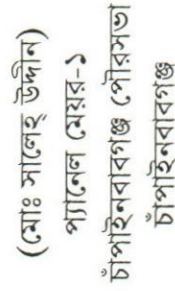 (মোঃ সালেহ্ উদ্দীন)
প্যানেল মেয়র-১
চাঁপাইনবাবগঞ্জ পৌরসভা
চাঁপাইনবাবগঞ্জ